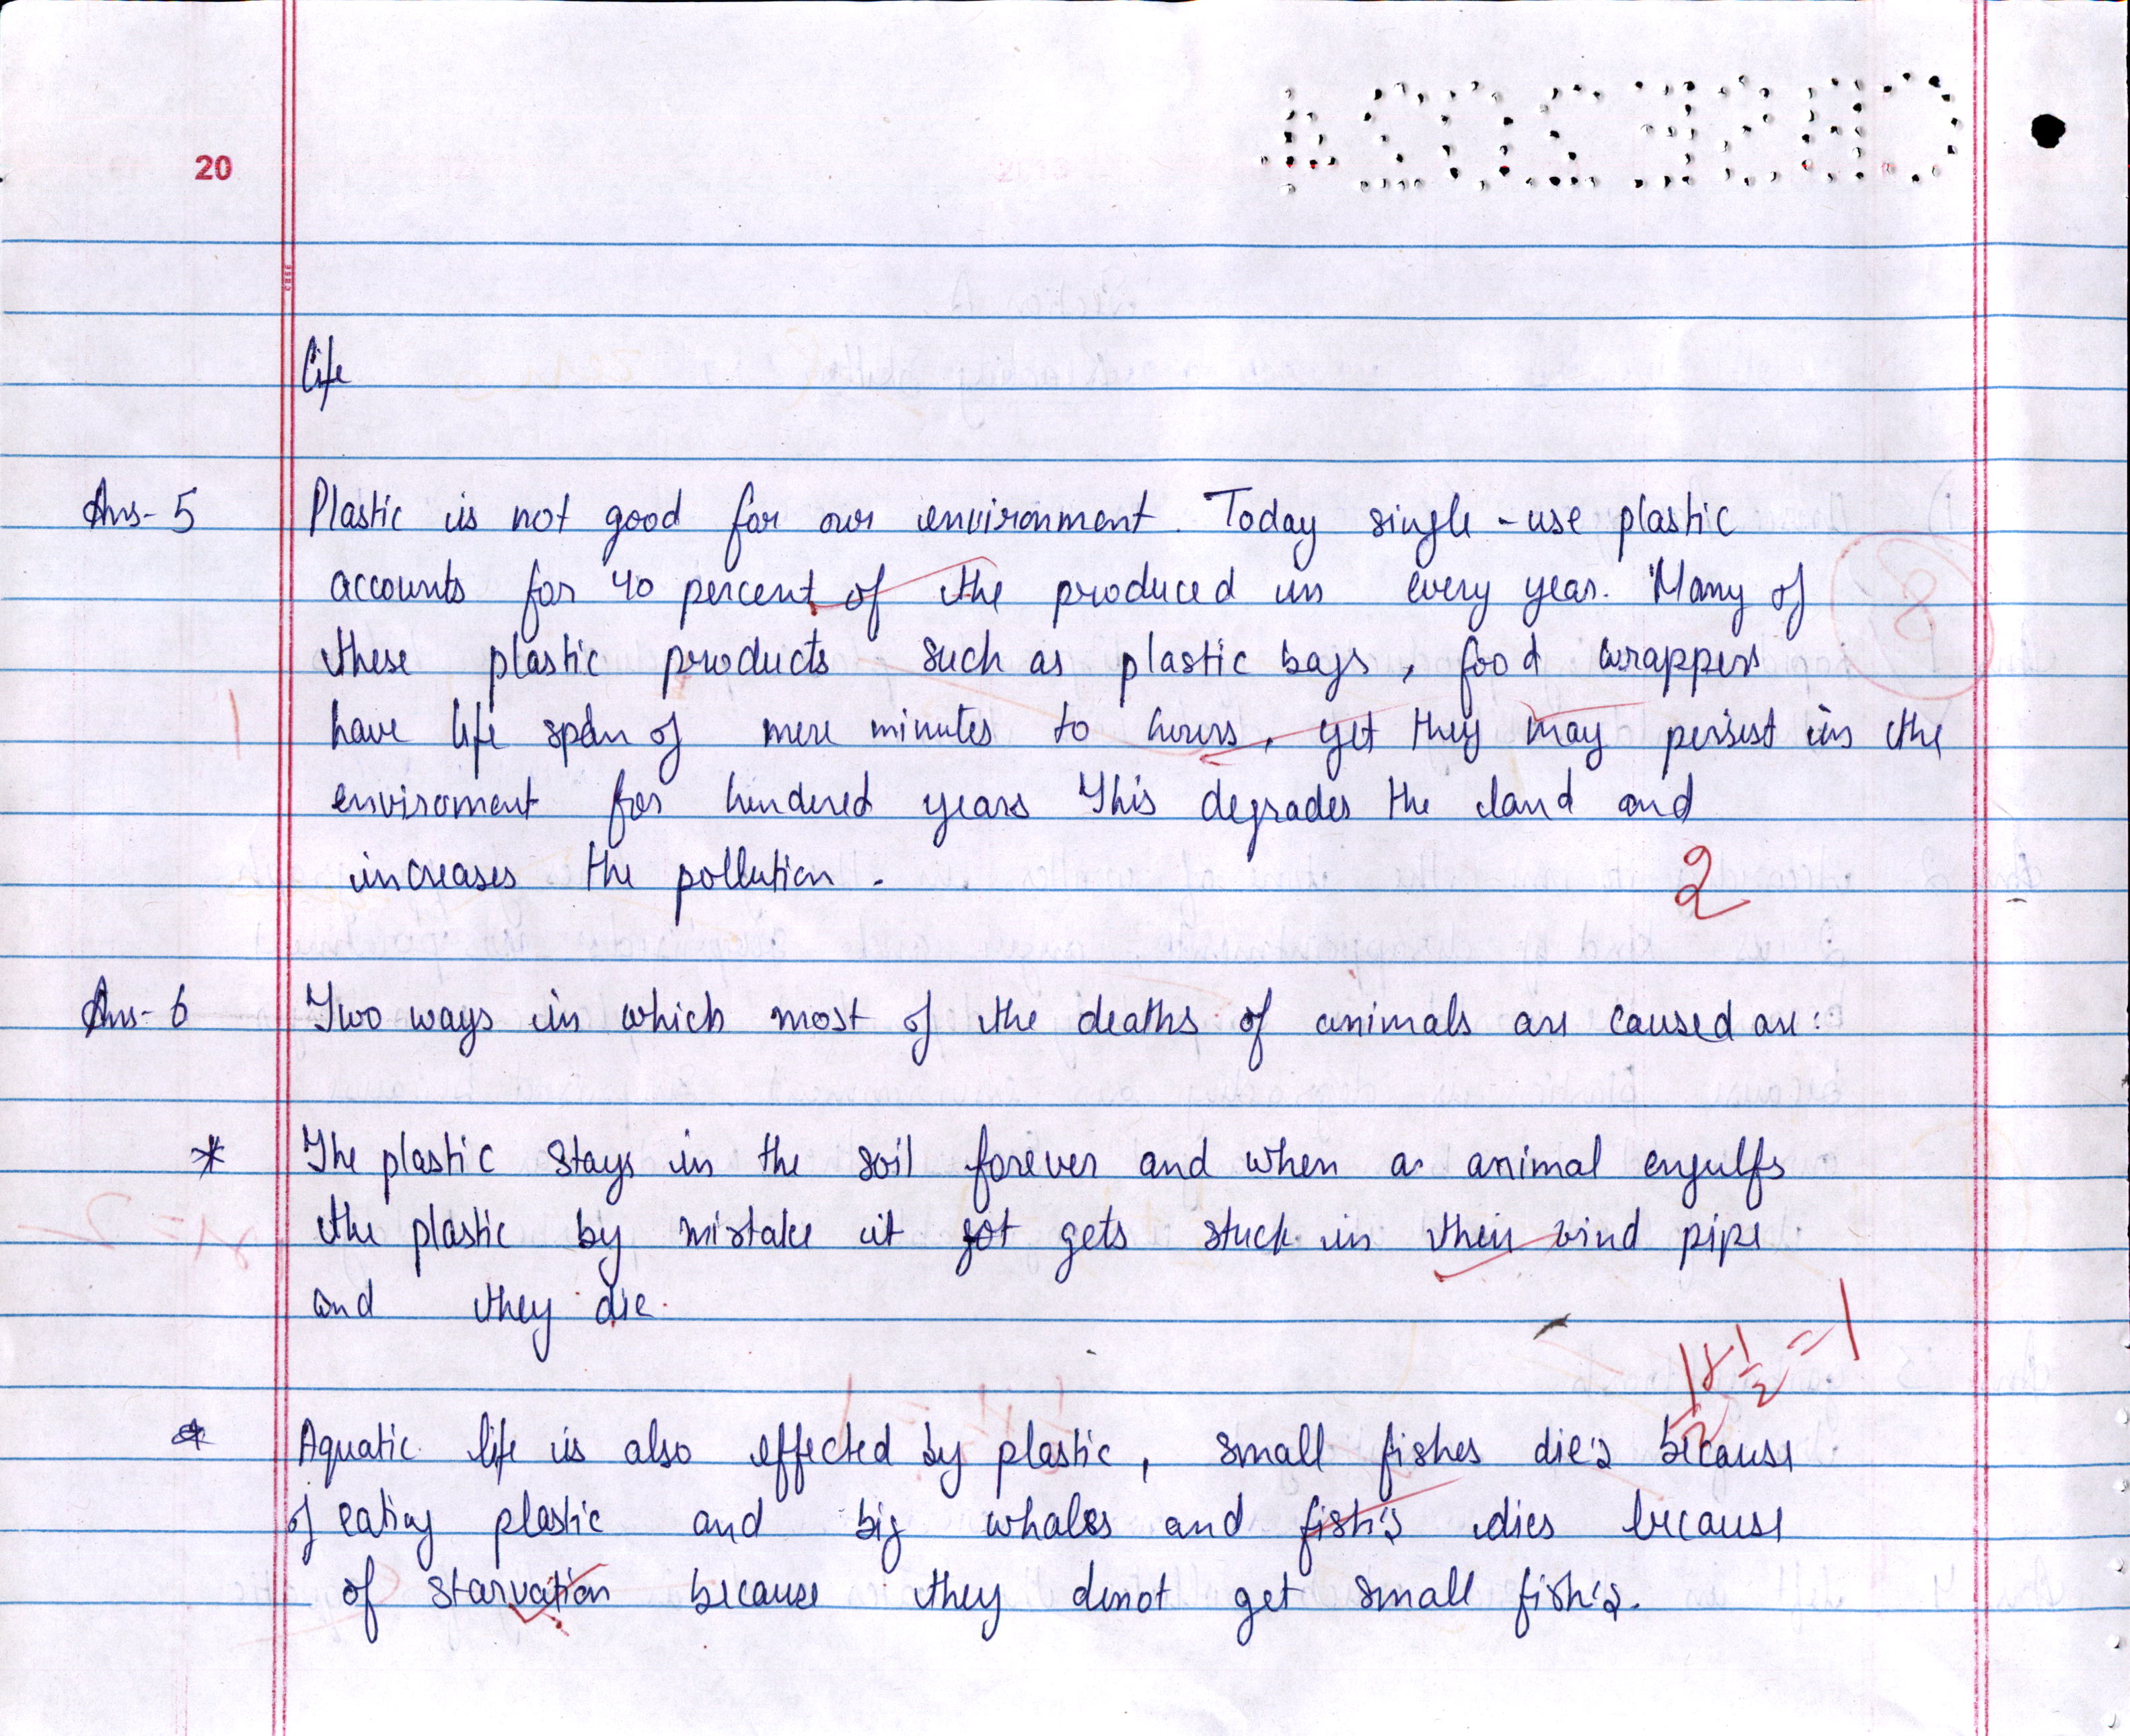 CBSE 2024
20
CBSE
life
Ans-5 Plastic is not good for our environment. Today single-use plastic
accounts for 40 percent of the produced in every year. Many of
these plastic products such as plastic bags, food wrappers
have life span of mere minutes to hours, yet they may persist in the
enviroment for hundered years This degrades the land and
increases the pollution.
2
Ans-6 Two ways in which most of the deaths of animals are caused are:
* The plastic stays in the soil forever and when a animal engulfs
the plastic by mistake it got gets stuck in their wind pipe
and they die.
1/2 + 1/2 = 1
* Aquatic life is also effected by plastic, small fishes die's because
of eating plastic and big whales and fish's dies because
of starvation because they donot get small fish's.